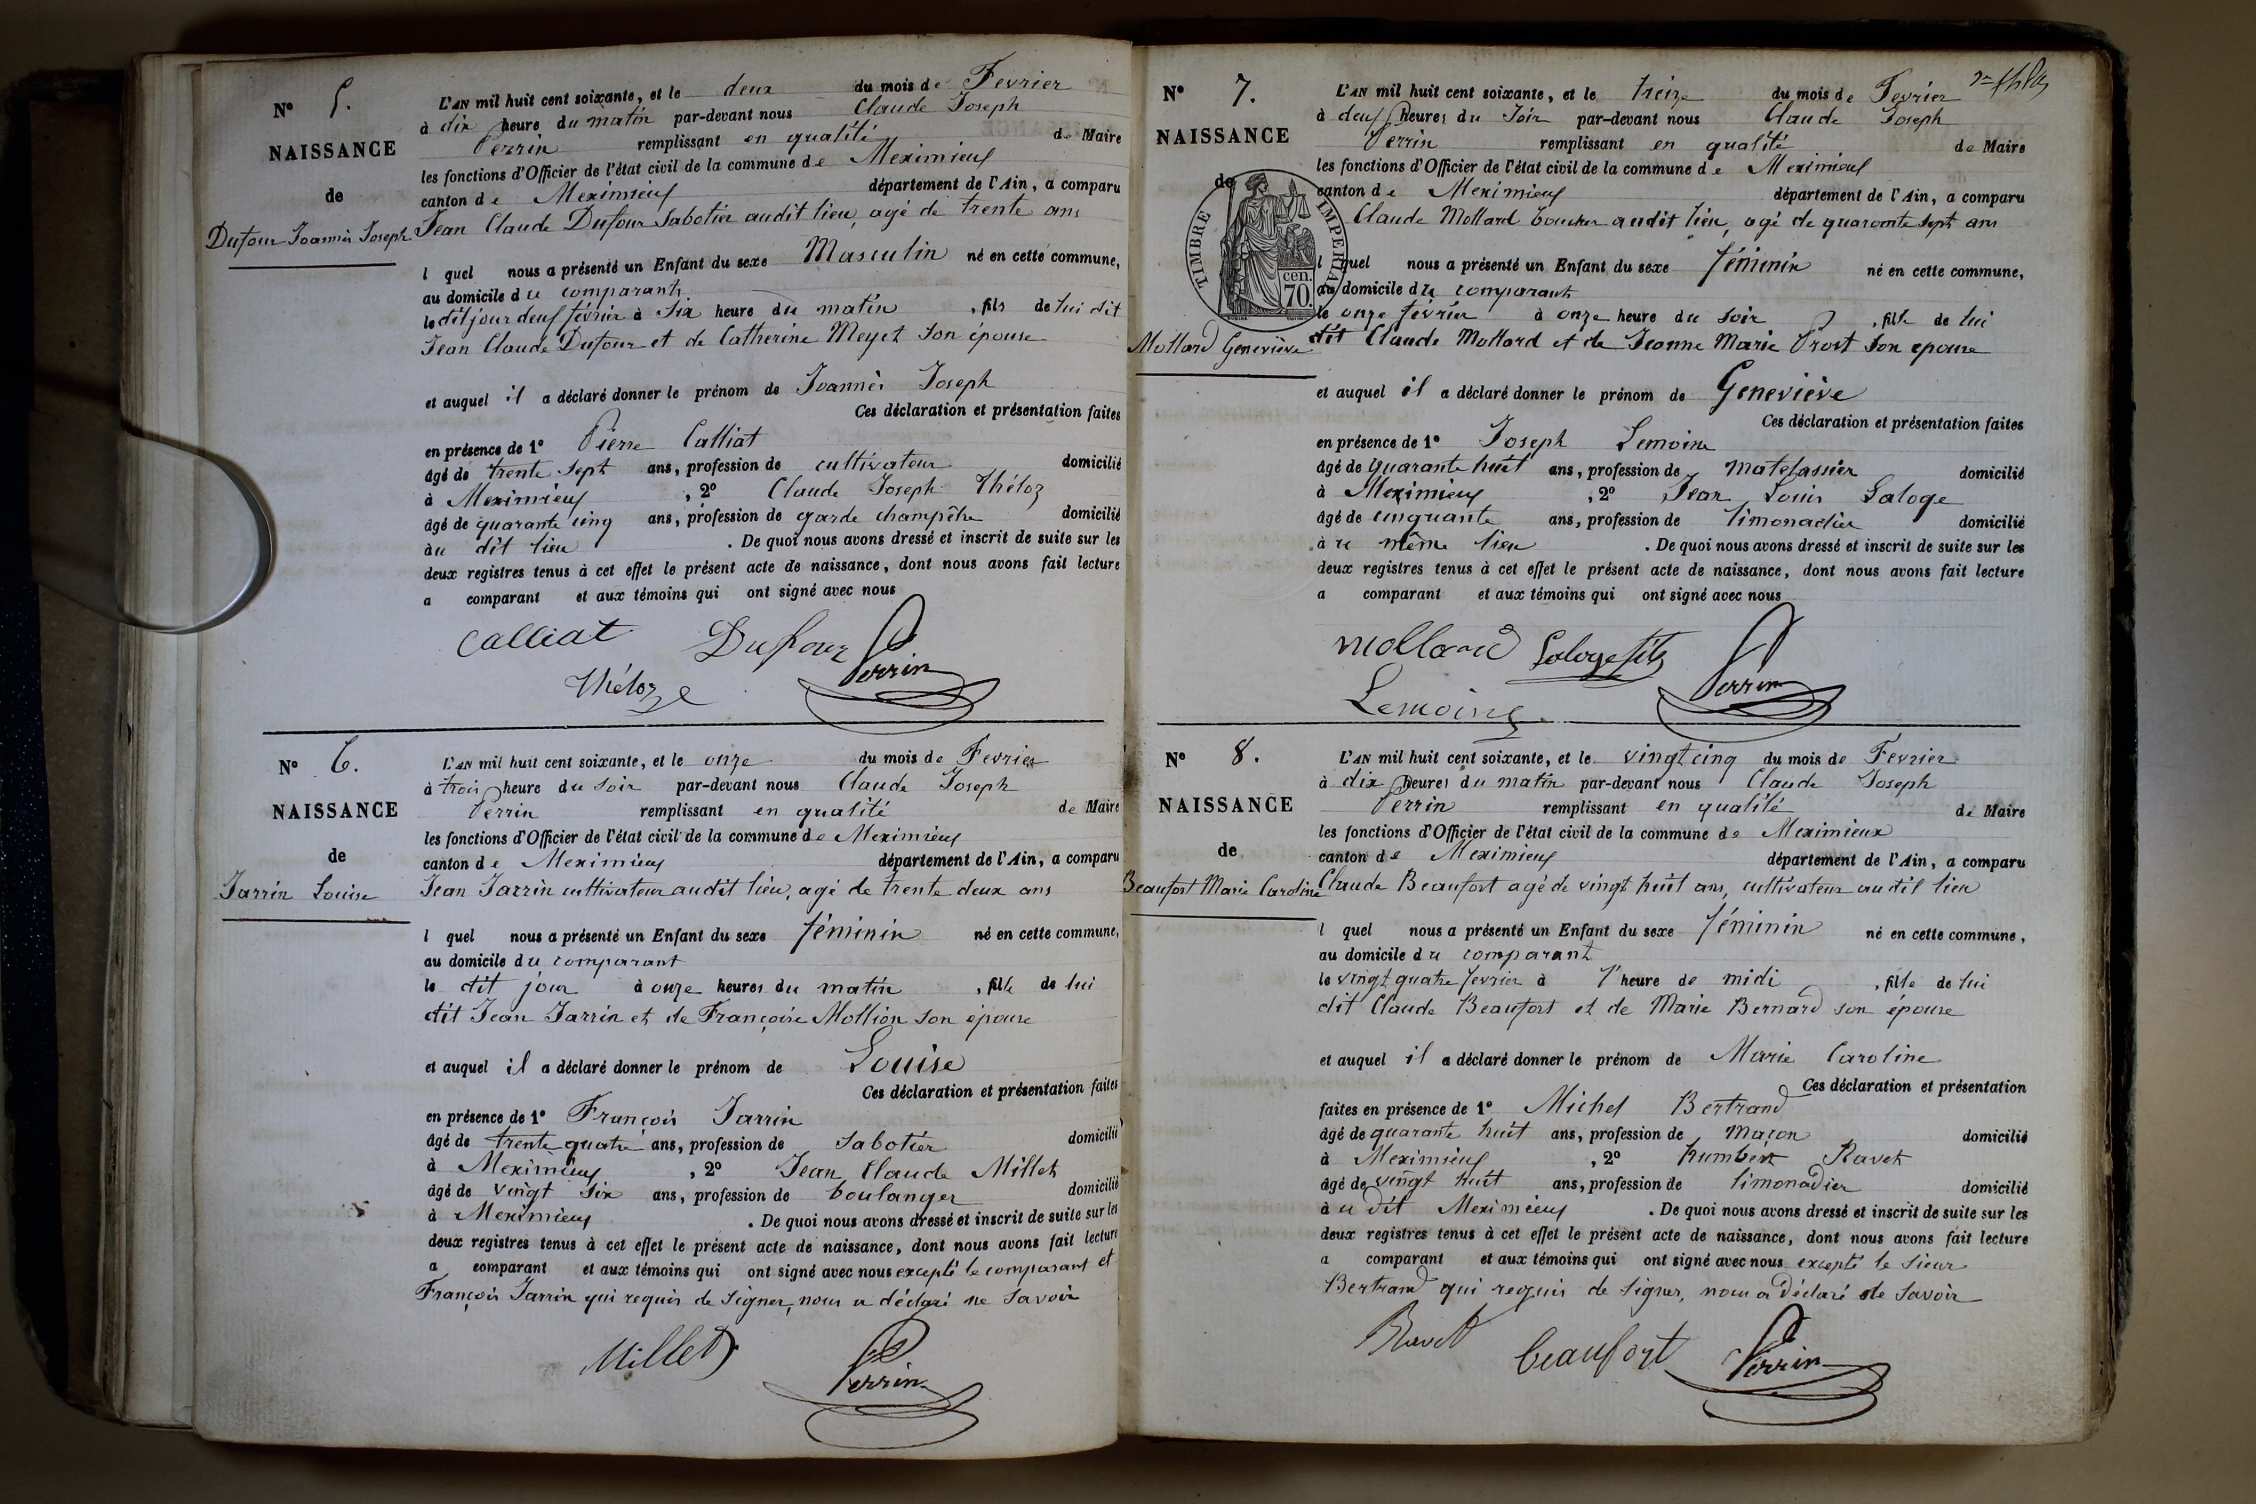 N° 5.
NAISSANCE
de
Dufour Joannès Joseph
L'AN mil huit cent soixante, et le deux du mois de Fevrier
à dix heure du matin par-devant nous Claude Joseph
Perrin remplissant en qualité de Maire
les fonctions d'Officier de l'état civil de la commune de Meximieux
canton de Meximieux département de l'Ain, a comparu
Jean Claude Dufour Sabotier audit lieu, agé de trente ans
l quel nous a présenté un Enfant du sexe Masculin né en cette commune,
au domicile du comparant
le dit jour deux février à six heure du matin , fils de lui dit
Jean Claude Dufour et de Catherine Meyet son épouse
et auquel il a déclaré donner le prénom de Joannès Joseph
Ces déclaration et présentation faites
en présence de 1° Pierre Calliat
âgé de trente sept ans, profession de cultivateur domicilié
à Meximieux , 2° Claude Joseph Théloz
âgé de quarante cinq ans, profession de garde champêtre domicilié
au dit lieu . De quoi nous avons dressé et inscrit de suite sur les
deux registres tenus à cet effet le présent acte de naissance, dont nous avons fait lecture
a comparant et aux témoins qui ont signé avec nous
Calliat Dufour Perrin
Théloz
N° 6.
NAISSANCE
de
Jarrin Louise
L'AN mil huit cent soixante, et le onze du mois de Fevrier
à trois heure du soir par-devant nous Claude Joseph
Perrin remplissant en qualité de Maire
les fonctions d'Officier de l'état civil de la commune de Meximieux
canton de Meximieux département de l'Ain, a comparu
Jean Jarrin cultivateur audit lieu, agé de trente deux ans
l quel nous a présenté un Enfant du sexe féminin né en cette commune,
au domicile du comparant
le dit jour à onze heures du matin , fille de lui
dit Jean Jarrin et de Françoise Mollion son épouse
et auquel il a déclaré donner le prénom de Louise
Ces déclaration et présentation faites
en présence de 1° François Jarrin
âgé de trente quatre ans, profession de sabotier domicilié
à Meximieux , 2° Jean Claude Millet
âgé de vingt six ans, profession de boulanger domicilié
à Meximieux . De quoi nous avons dressé et inscrit de suite sur les
deux registres tenus à cet effet le présent acte de naissance, dont nous avons fait lecture
a comparant et aux témoins qui ont signé avec nous excepté le comparant et
François Jarrin qui requis de signer, nous a déclaré ne savoir
Millet Perrin
N° 7.
NAISSANCE
de
TIMBRE IMPERIAL
cen. 70.
Mollard Geneviève
L'AN mil huit cent soixante, et le treize du mois de Fevrier
à deux heures du soir par-devant nous Claude Joseph
Perrin remplissant en qualité de Maire
les fonctions d'Officier de l'état civil de la commune de Meximieux
canton de Meximieux département de l'Ain, a comparu
Claude Mollard boucher audit lieu, agé de quarante sept ans
l quel nous a présenté un Enfant du sexe féminin né en cette commune,
au domicile du comparant
le onze février à onze heure du soir , fille de lui
dit Claude Mollard et de Jeanne Marie Prost son epouse
et auquel il a déclaré donner le prénom de Geneviève
Ces déclaration et présentation faites
en présence de 1° Joseph Lemoine
âgé de quarante huit ans, profession de matelassier domicilié
à Meximieux , 2° Jean Louis Laloge
âgé de cinquante ans, profession de limonadier domicilié
au même lieu . De quoi nous avons dressé et inscrit de suite sur les
deux registres tenus à cet effet le présent acte de naissance, dont nous avons fait lecture
a comparant et aux témoins qui ont signé avec nous
Mollard Laloge fils Perrin
Lemoine
N° 8.
NAISSANCE
de
Beaufort Marie Caroline
L'AN mil huit cent soixante, et le vingt cinq du mois de Fevrier
à dix heures du matin par-devant nous Claude Joseph
Perrin remplissant en qualité de Maire
les fonctions d'Officier de l'état civil de la commune de Meximieux
canton de Meximieux département de l'Ain, a comparu
Claude Beaufort agé de vingt huit ans, cultivateur au dit lieu
l quel nous a présenté un Enfant du sexe féminin né en cette commune,
au domicile du comparant
le vingt quatre fevrier à l'heure de midi , fille de lui
dit Claude Beaufort et de Marie Bernard son épouse
et auquel il a déclaré donner le prénom de Marie Caroline
Ces déclaration et présentation
faites en présence de 1° Michel Bertrand
âgé de quarante huit ans, profession de maçon domicilié
à Meximieux , 2° humbert Ravet
âgé de vingt huit ans, profession de limonadier domicilié
au dit Meximieux . De quoi nous avons dressé et inscrit de suite sur les
deux registres tenus à cet effet le présent acte de naissance, dont nous avons fait lecture
a comparant et aux témoins qui ont signé avec nous excepté le sieur
Bertrand qui requis de signer, nous a déclaré ne savoir
Ravet Beaufort Perrin